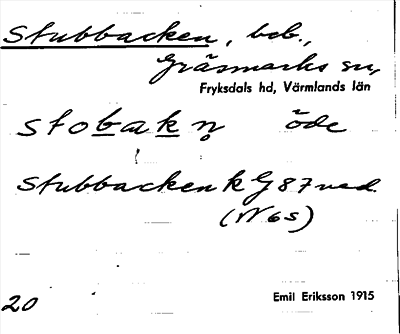 Stubbacken, beb.,
Gräsmarks sn,
Fryksdals hd, Värmlands län
stobakn̥ öde
Stubbacken k G 87 ned.
(N 65)
20
Emil Eriksson 1915